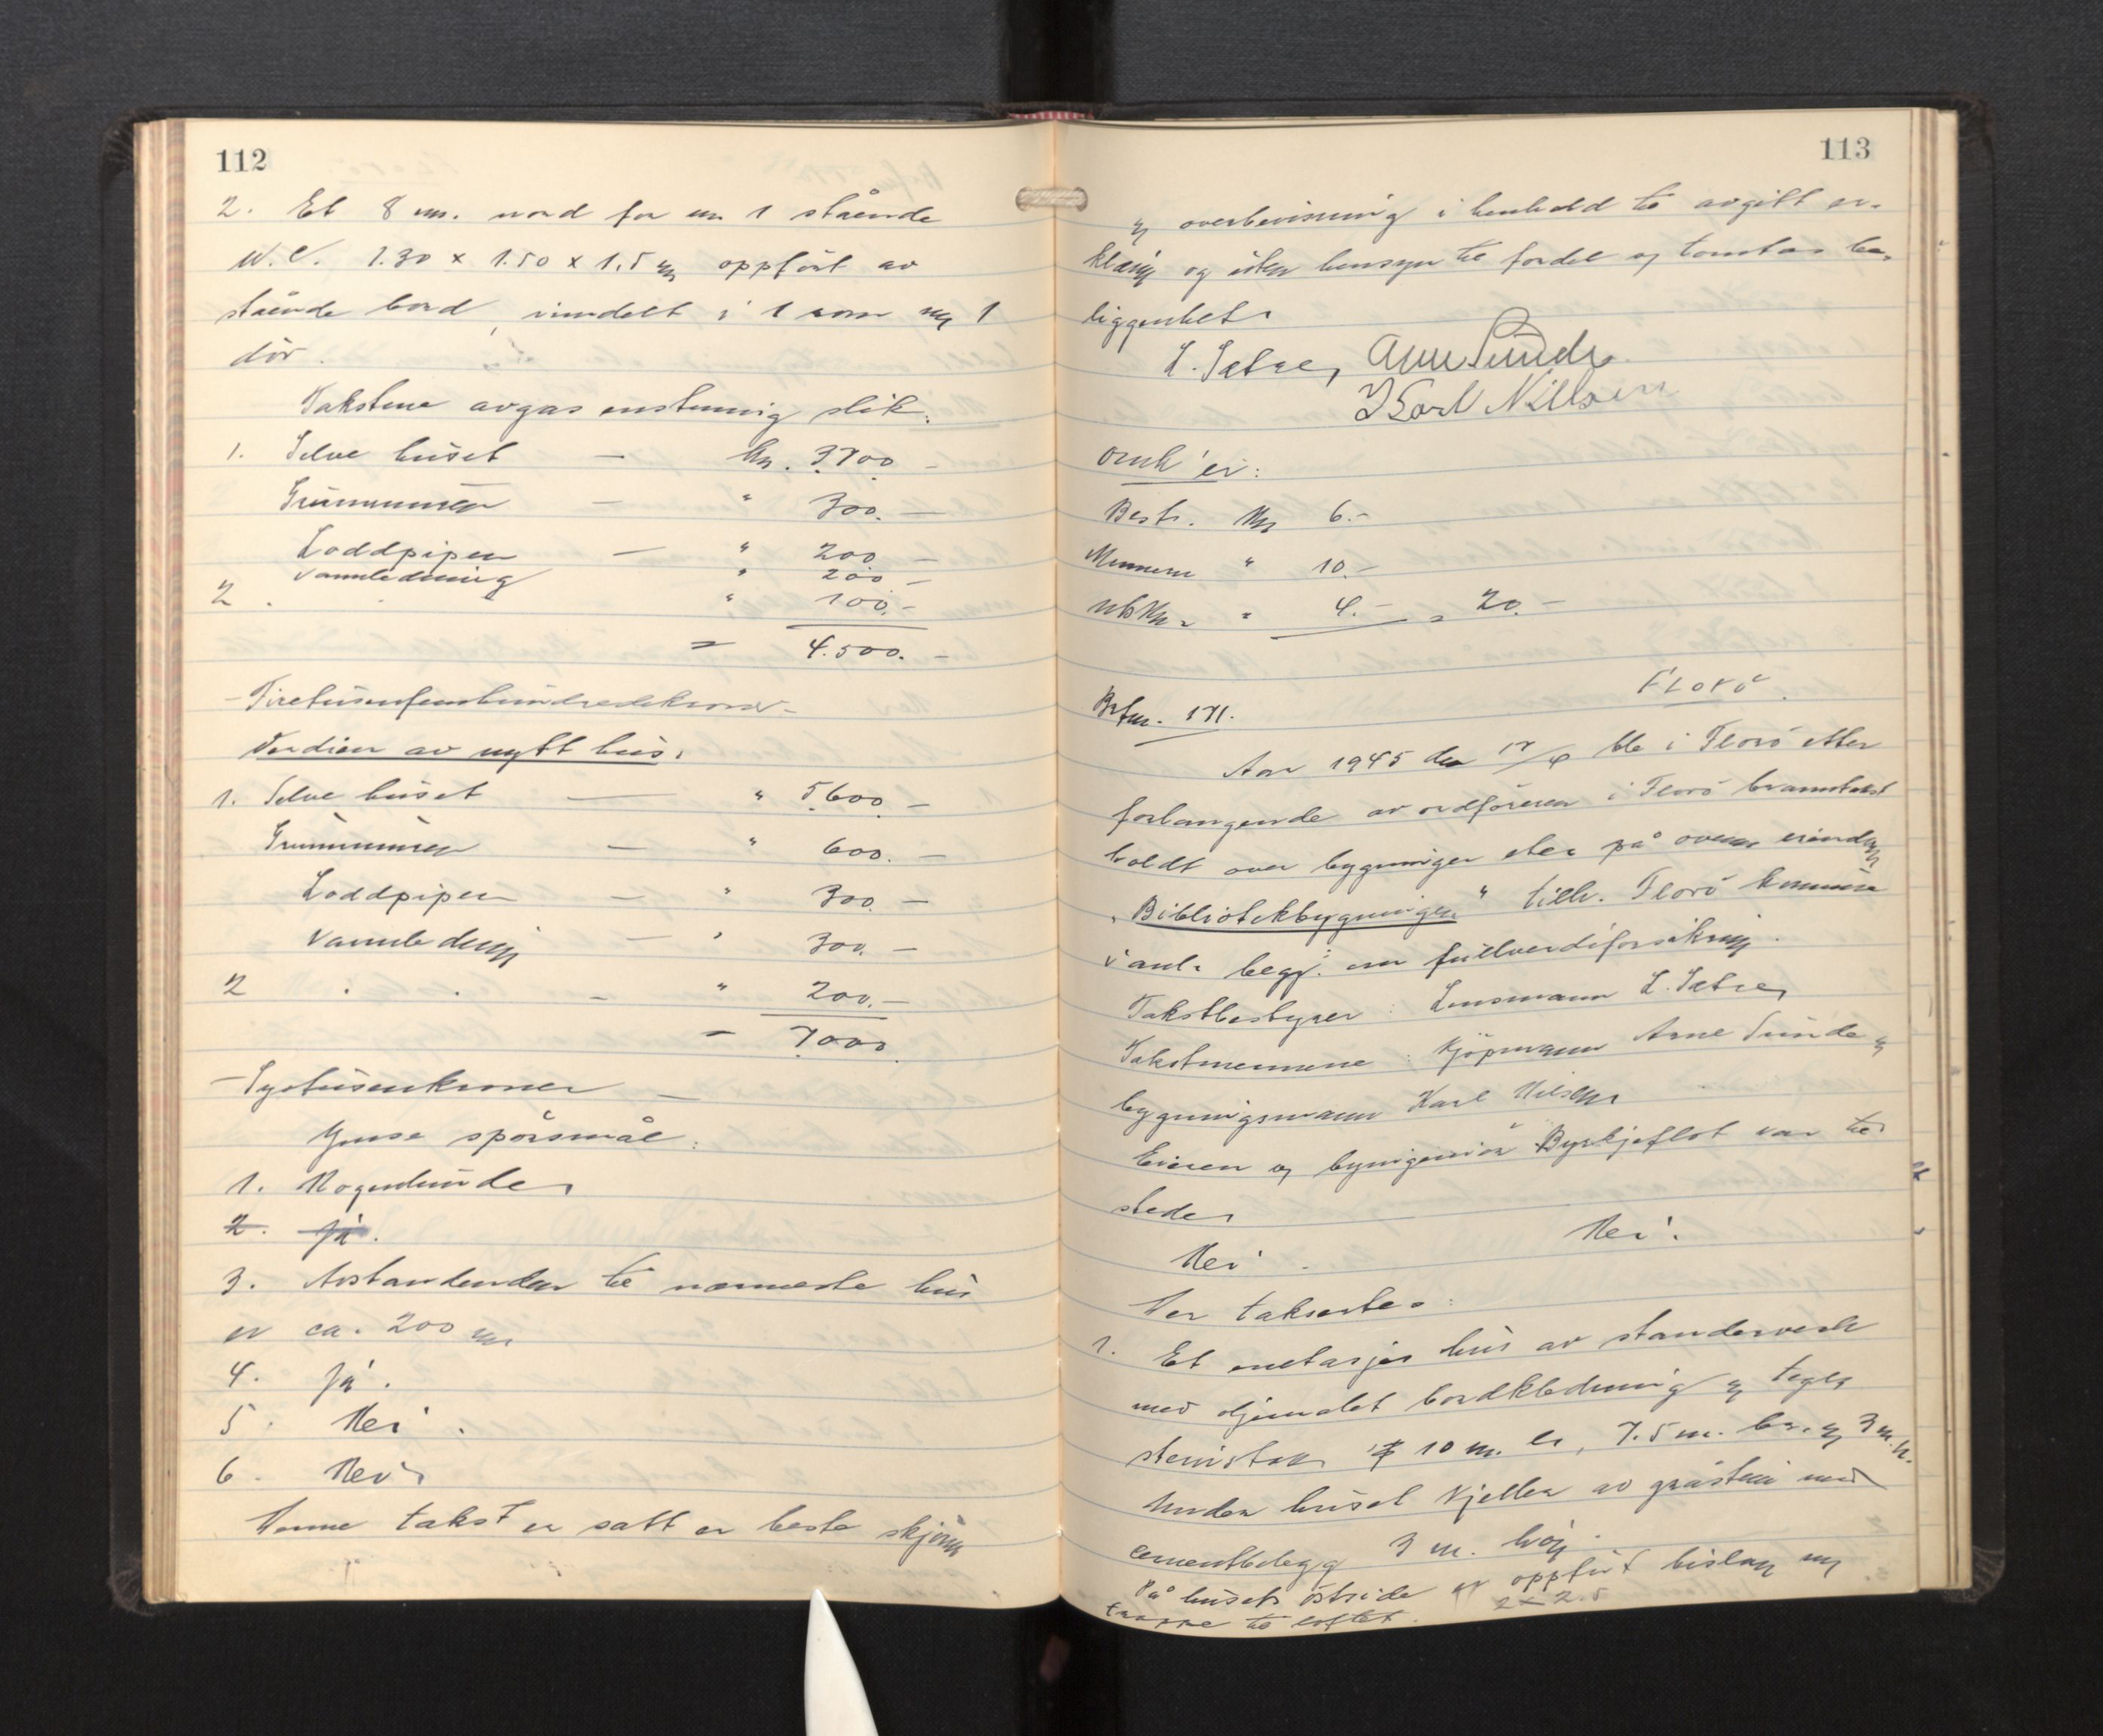 112
2. Et 8 m. nord for nr 1 stående
W.C. 1.30 x 1.50 x 1.5 m oppført av
stående bord, inndelt i 1 rom og 1
dör.
Takstene avgas enstemmig slik:
1. Selve huset — kr. 3700 —
Grunnmuren — " 300. —
Loddpipen — " 200 —
Vannledning " 200 —
2. " 100.—
= 4.500. —
- Firetusenfemhundredekroner -
Verdien av nytt hus.
1. Selve huset — " 5600 —
Grunnmuren — " 600. —
Loddpipen — " 300. —
Vannledning — " 300. —
2 . . — " 200.—
= 7000.
- Syvtusenkroner —
Ymse spörsmål:
1. Nogenlunde.
2. Ja.
3. Avstanden til nærmeste hus
er ca. 200 m.
4. Ja.
5. Nei.
6. Nei.
Denne takst er satt er beste skjönn
113
og overbevisning i henhold til avgitt er-
klæring og uten hensyn til fordel og tomtas be-
liggenhet.
L. Sætre, Arne Sunde
Karl Nilsen
Bestr. kr 6.-
Mennene " 10.-
" 4.- = 20.-
Florö.
Brfm. 171.
Aar 1945 den ble i Florö etter
forlangende av ordföreren i Florö branntakst
holdt over bygninger eller på eiendom
"Bibliotekbygningen" tilh. Florö kommune
i anl. begj. om fullverdiforsikring.
Takstbestyrer: Lensmann L. Sætre,
Takstmennene: kjöpmann Arne Sunde og
bygningsmann Karl Nilsen
Eieren og byingeniör Byrkjeflot var til
stede.
Nei. Nei.
Der takseres:
1. Et enetasjes hus av standerverk
med oljemalet bordkledning og tegl-
steinstak 10 m. l., 7.5 m. br. og 3 m. h.
Under huset kjeller av gråstein med
cementbelegg 3 m. höy.
På husets östside er oppfört bislag og
2 x 2.5
trappe til loftet.